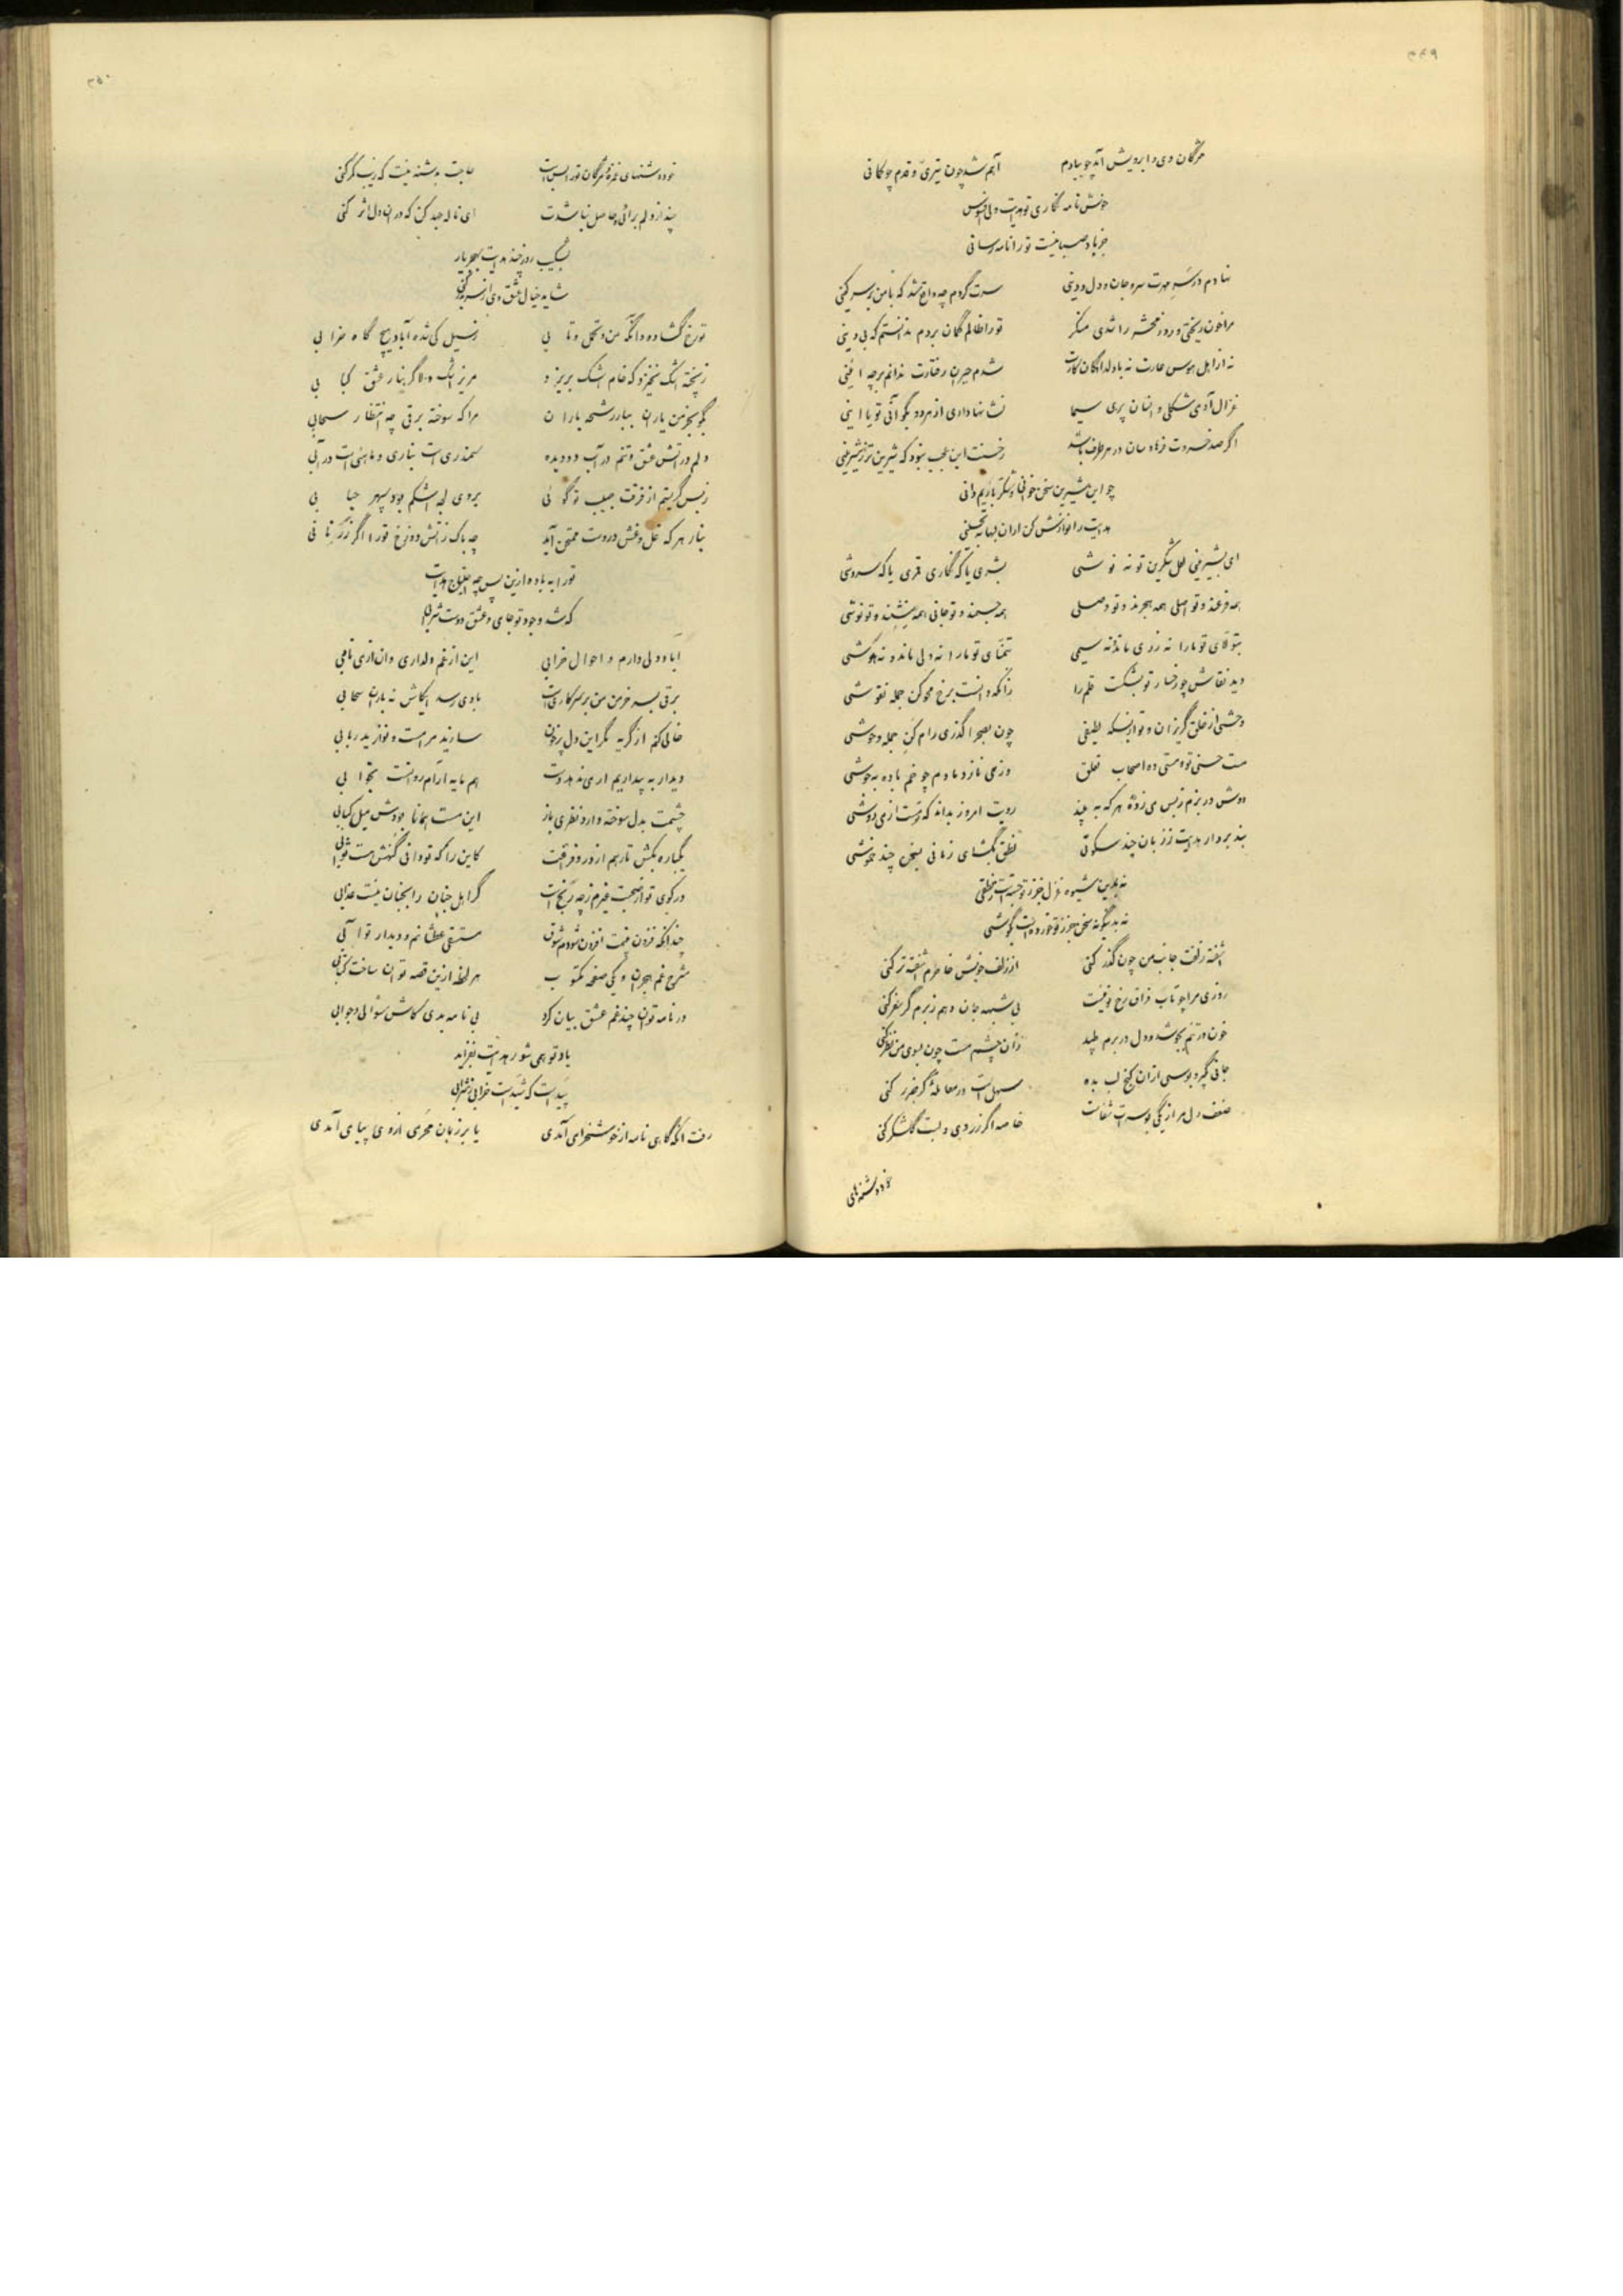 ۳۴۹
مژگان وی و ابرویش آید چو بیادم آهم شد چون تیری و قدم چو کمانی
خوش نامه نگاری تو هدایت ولی افسوس
جز باد صبا نیست تو را نامه رسانی
نهادم در سر مهرت سر و جان و دل و دینی سرت گردم چه واقع شد که با من بر سر کینی
مرا خون ریختی و روز محشر را شدی منکر تو را ظالم گمان بردم ندانستم که بی دینی
نه از اهل هوس عارت نه با دلدادگان کارت شدم حیران رفتارت ندانم بر چه آئینی
غزال آدمی شکلی و انسان پری سیما نشانها داری از هر دو بگو آنی تو یا اینی
اگر صد خسروت فرهاد سان در هر طرف باشد ز حسنت این عجب نبود که شیرین تر ز شیرینی
چو این شیرین سخن خوانی و شکر باریم دانی
هدایت را نوازش کن از آن لبها به تحسینی
ای بشیرینی لعل شکرین تو نه نوشی بشری یا که نگاری قمری یا که سروشی
همه فرعند و تو اصلی همه هجرند و تو وصلی همه جسمند و تو جانی همه نیشند و تو نوشی
بتولای تو ما را نه زری ماند نه سیمی تمنای تو ما را نه دلی ماند و نه هوشی
دید نقاش چو رخسار تو بشکست قلم را زانکه دانست برخ محو کن جمله نقوشی
وحشی از خلق گریزان و تو از بسکه لطیفی چون بصحرا گذری رام کن جمله وحوشی
مست حسنی تو و مستی ده اصحاب تعلق وز می ناز دمادم چو خم باده بجوشی
دوش در بزم ز بس می زدهٔ هر که به بیند رویت امروز بداند که تو مست از می دوشی
بند بردار هدایت ز زبان چند سکوتی نطق بگشای زمانی بسخن چند خموشی
نه بدین شیوه غزل جز ز تو جسته است ز نطقی
نه بدینگونه سخن جز ز تو خورده است بگوشی
آشفته زلفت جانب من چون گذر کنی از زلف خویش خاطرم آشفته تر کنی
روزی مرا چو تاب فراق رخ تو نیست بی شبهه جان دهم ز برم گر سفر کنی
خون در تنم بجوشد و دل در برم طپد زان چشم مست چون بسوی من نظر کنی
جانی بگیر و بوسی از آن کنج لب بده سهل است در معامله گر ضرر کنی
ضعف دل مرا ز یکی بوسه است شفات خاصه اگر ز روی و لبت گلشکر کنی
خود دشنه‌های
۳۵۰
خود دشنهای غمزهٔ مژگان تو را بس است حاجت بدشنه نیست که زیب کمر کنی
چند از دلم برائی و حاصل نباشدت ای ناله جهد کن که در آن دل اثر کنی
بشکیب روز چند هدایت بهجر یار
شاید خیال عشق وی از سر بدر کنی
تو رخ گشاده و دانگه من و تحمل و تابی ز سیل کی شده آباد هیچ گاه خرابی
ز پخته اشک نخیزد که خام اشک بریزد مریز اشک دلا گر بنار عشق کبابی
بگو بجز من یاران ببارد رشحه باران مرا که سوخته برقی چه انتظار سحابی
دلم در آتش عشق و تنم در آب دو دیده سمندری است بناری و ماهئی است در آبی
ز بس گریستم از فرقت حبیب تو گوئی بروی لجه اشکم بود سپهر حبابی
بنار هر که غل و غشش در اوست ممتحن آید چه باک ز آتش دوزخ تو را اگر زر نابی
تو را به باده ازین پس چه احتیاج هدایت
که شد وجود تو جای و عشق دوست شرابی
آباد دلی دارم و احوال خرابی این از غم دلداری و آن از می نابی
برقی بسر خرمن من بر سر کار است بادی رسد ایکاش نه باران سحابی
خالی کنم از گریه مگر این دل پر خون سازید مرا مست و نوازید ربابی
دیدار به بیداریم ار می ندهد دست هم مایه آرام روانست بخوابی
چشمت بدل سوخته دارد نظری باز این مست همانا بودش میل کبابی
یکباره بکش تا رهم از درد فراقت کاین را که تو دانی گنهش هست ثوابی
در کوی تو از صحبت غیرم ز چه رنج است گر اهل جنان را بجنان نیست عذابی
چندانکه فزون بینمت افزون شودم شوق مستسقی عطشانم و دیدار تو آبی
شرح غم هجران و یکی صفحه مکتوب هر لحظه ازین قصه توان ساخت کتابی
در نامه توان چند غم عشق بیان کرد بی نامه بدی کاش سئوالی و جوابی
یاد تو همی شور هدایت بفزاید
پیداست که شیداست خرابی ز شرابی
رفت آنکه گاهی نامه از خوشخرامی آمدی یا بر زبان محرمی از وی پیامی آمدی